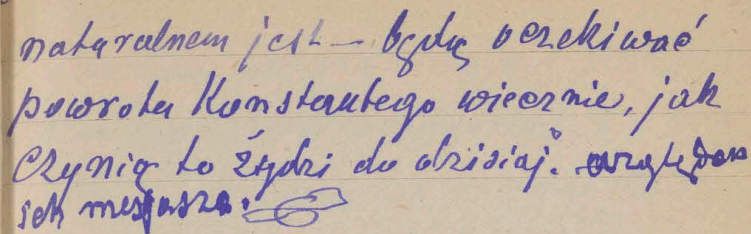 naturalnem jest – będą oczekiwać
powrotu Konstantego wiecznie, jak
czynią to Żydzi do dzisiaj."
mesjasza.